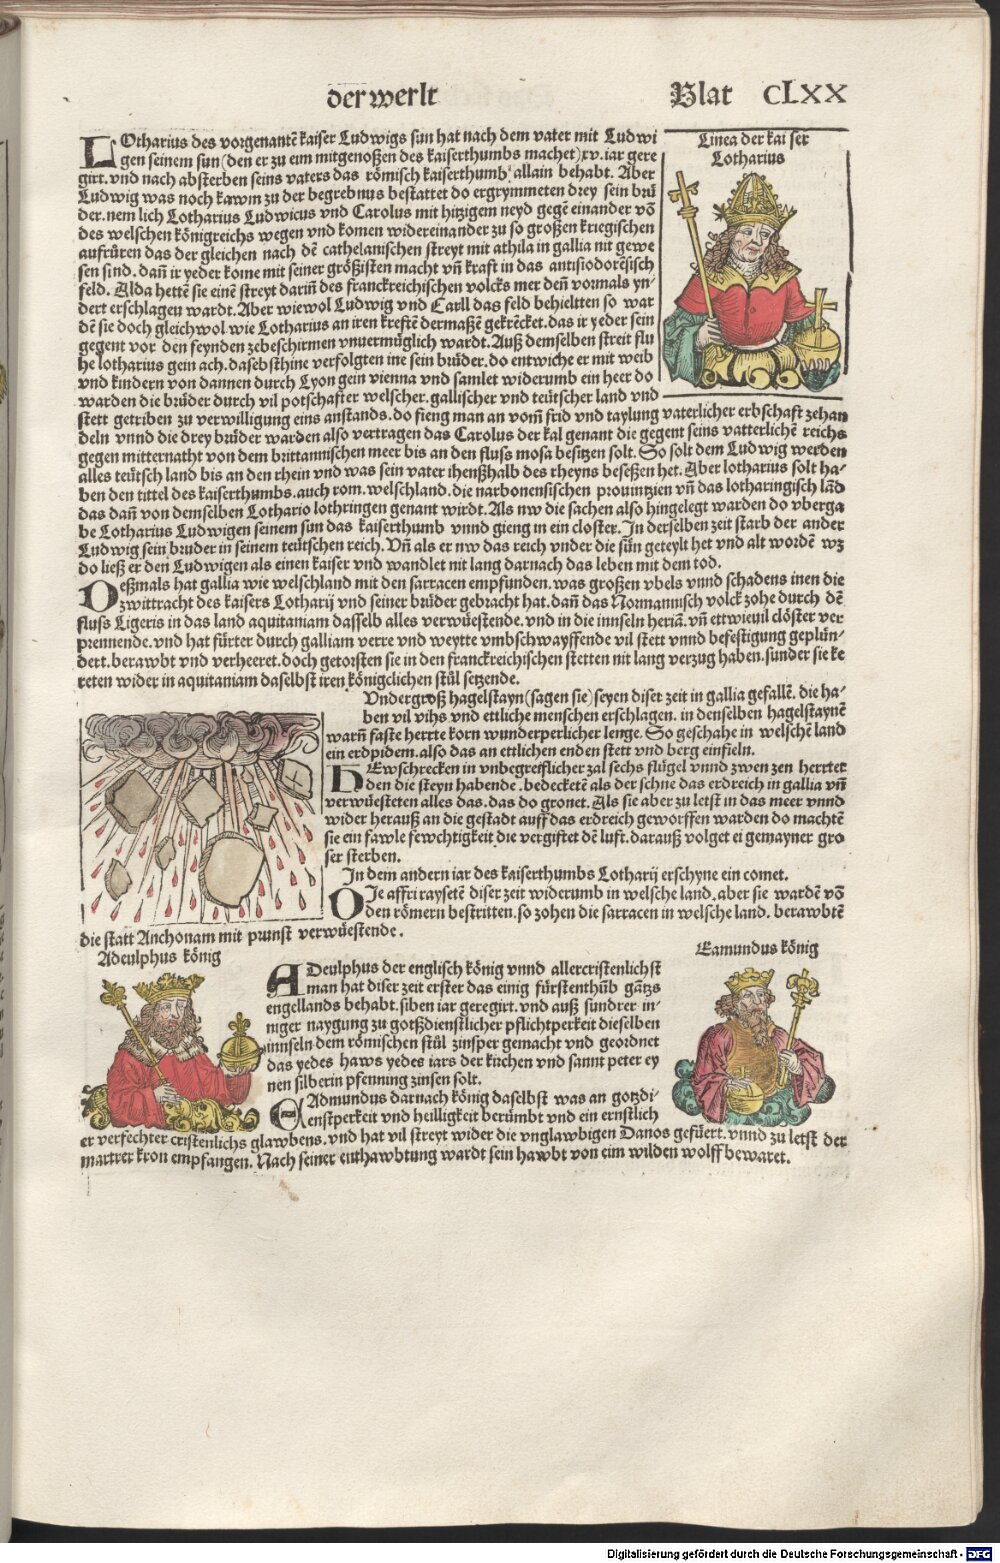 der werlt Blat CLXX
Linea der kaiser
Lotharius
LOtharius des vorgenantē kaiser Ludwigs sun hat nach dem vater mit Ludwi
gen seinem sun (den er zu eim mitgenoßen des kaiserthumbs machet) xv. iar gere
girt. vnd nach absterben seins vaters das römisch kaiserthumb allain behabt. Aber
Ludwig was noch kawm zu der begrebnus bestattet do ergrymmeten drey sein brü
der. nem lich Lotharius Ludwicus vnd Carolus mit hitzigem neyd gegē einander vō
des welschen königreichs wegen vnd komen widereinander zu so großen kriegischen
aufrüren das der gleichen nach dē cathelanischen streyt mit athila in gallia nit gewe
sen sind. dañ ir yeder kome mit seiner größisten macht vñ kraft in das antisiodorēsisch
feld. Alda hettē sie einē streyt dariñ des franckreichischen volcks mer deñ vormals yn-
dert erschlagen wardt. Aber wiewol Ludwig vnd Carll das feld behielten so war
dē sie doch gleichwol wie Lotharius an iren kreftē dermaßē gekrēcket. das ir yeder sein
gegent vor den feynden zebeschirmen vnuermüglich wardt. Auß demselben streit flu
he lotharius gein ach. dasebsthine verfolgten ine sein brüder. do entwiche er mit weib
vnd kindern von dannen durch Lyon gein vienna vnd samlet widerumb ein heer do
warden die brüder durch vil potschafter welscher. gallischer vnd teütscher land vnd
stett getriben zu verwilligung eins anstands. do fieng man an vom̄ frid vnd taylung vaterlicher erbschaft zehan
deln vnnd die drey brüder warden also vertragen das Carolus der kal genant die gegent seins vatterlichē reichs
gegen mitternatht von dem brittannischen meer bis an den fluss mosa besitzen solt. So solt dem Ludwig werden
alles teütsch land bis an den rhein vnd was sein vater ihenßhalb des rheyns beseßen het. Aber lotharius solt ha-
ben den tittel des kaiserthumbs. auch rom. welschland. die narbonensischen prouintzien vñ das lotharingisch lād
das dañ von demselben Lothario lothringen genant wirdt. Als nw die sachen also hingelegt warden do vberga
be Lotharius Ludwigen seinem sun das kaiserthumb vnnd gieng in ein closter. In derselben zeit starb der ander
Ludwig sein bruder in seinem teütschen reich. Vñ als er nw das reich vnder die sün geteylt het vnd alt wordē wz
do ließ er den Ludwigen als einen kaiser vnd wandlet nit lang darnach das leben mit dem tod.
DEßmals hat gallia wie welschland mit den sarracen empfunden. was großen vbels vnnd schadens inen die
zwittracht des kaisers Lotharij vnd seiner brüder gebracht hat. dañ das Normannisch volck zohe durch dē
fluss Ligeris in das land aquitaniam dasselb alles verwüestende. vnd in die innseln heriā. vñ ettwievil clöster ver
prennende. vnd hat fürter durch galliam verre vnd weytte vmbschwayffende vil stett vnnd befestigung geplün-
dert. berawbt vnd verheeret. doch getorsten sie in den franckreichischen stetten nit lang verzug haben. sunder sie ke
reten wider in aquitaniam daselbst iren königclichen stůl setzende.
Vndergroß hagelstayn (sagen sie) seyen diser zeit in gallia gefallē. die ha-
ben vil vihs vnd ettliche menschen erschlagen. in denselben hagelstaynē
warñ faste herrte korn wunderperlicher lenge. So geschahe in welschē land
ein erdpidem. also das an ettlichen enden stett vnd berg einfieln.
HEwschrecken in vnbegreifflicher zal sechs flügel vnnd zwen zen herrter
den die steyn habende. bedecketē als der schne das erdreich in gallia vñ
verwüesteten alles das. das do gronet. Als sie aber zu letst in das meer vnnd
wider herauß an die gestadt auff das erdreich geworffen warden do machtē
sie ein fawle fewchtigkeit die vergiftet dē luft. darauß volget ei gemayner gro
ser sterben.
In dem andern iar des kaiserthumbs Lotharij erschyne ein comet.
DIe affri raysetē diser zeit widerumb in welsche land. aber sie wardē vō
den römern bestritten. so zohen die sarracen in welsche land. berawbtē
die statt Anchonam mit prunst verwüestende.
Adeulphus könig
Eamundus könig
ADeulphus der englisch könig vnnd allercristenlichst
man hat diser zeit erster das einig fürstenthūb gātzs
engellands behabt. siben iar geregirt. vnd auß sundrer in-
niger naygung zu gotßdienstlicher pflichtperkeit dieselben
innseln dem römischen stůl zinsper gemacht vnd geordnet
das yedes haws yedes iars der kirchen vnd sannt peter ey
nen silberin pfenning zinsen solt.
EAdmundus darnach könig daselbst was an gotzdi-
enstperkeit vnd heilligkeit berümbt vnd ein ernstlich
er verfechter cristenlichs glawbens. vnd hat vil streyt wider die vnglawbigen Danos gefüert. vnnd zu letst der
martrer kron empfangen. Nach seiner enthawbtung wardt sein hawbt von eim wilden wolff bewaret.
Digitalisierung gefördert durch die Deutsche Forschungsgemeinschaft - DFG